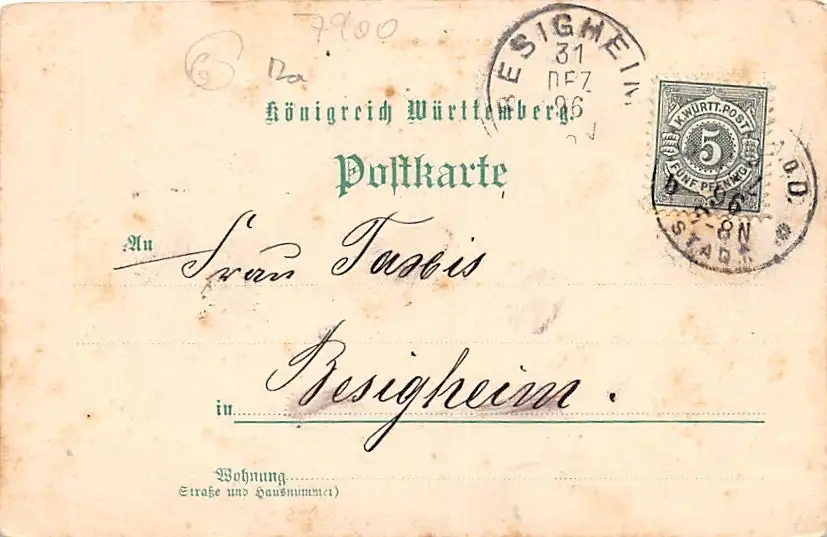 7900
6
BESIGHEIM
31
DEZ
96
Königreich Württemberg.
K.WÜRTT.POST
5
FÜNF PFENNIG
Postkarte
96
-8N
STADT
An Frau Taxis
in Besigheim.
Wohnung
Straße und Hausnummer)